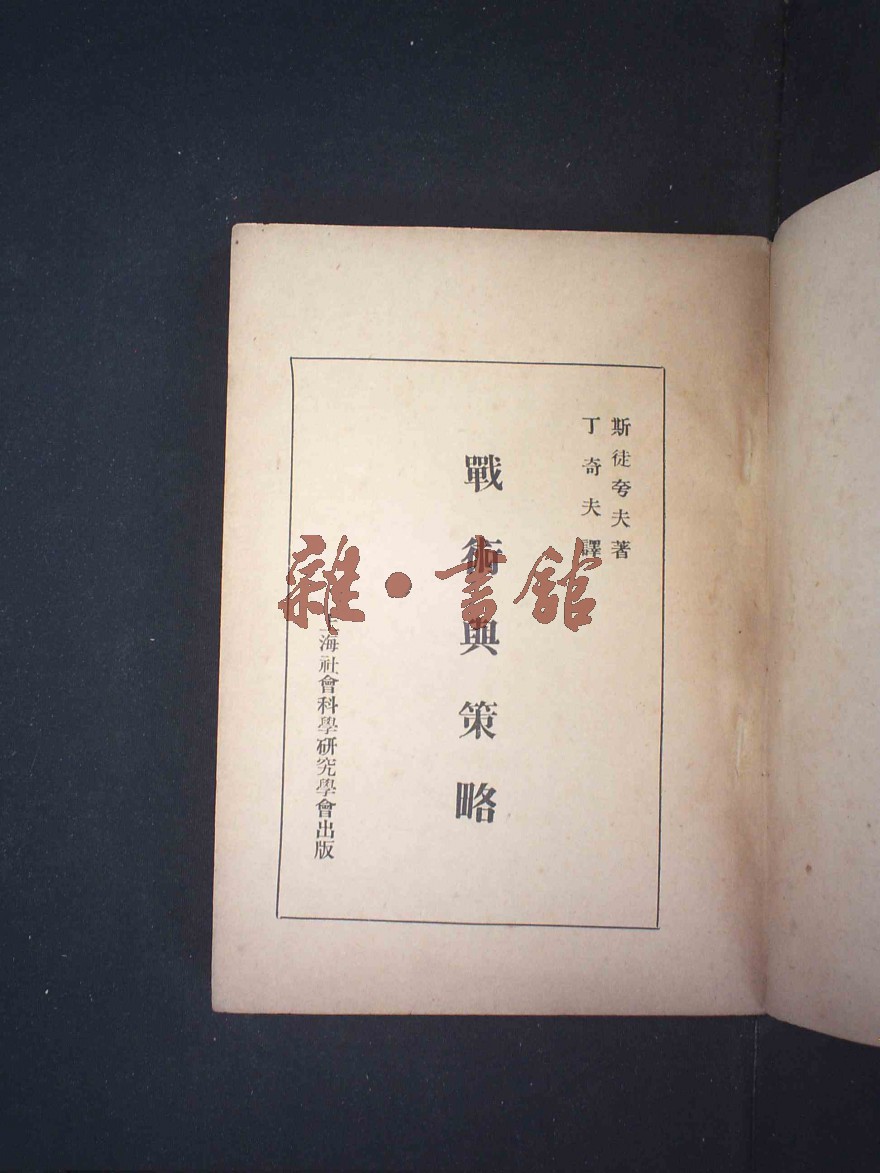 斯徒夸夫著
丁奇夫譯
戰術與策略
上海社會科學研究學會出版
雜·書舘